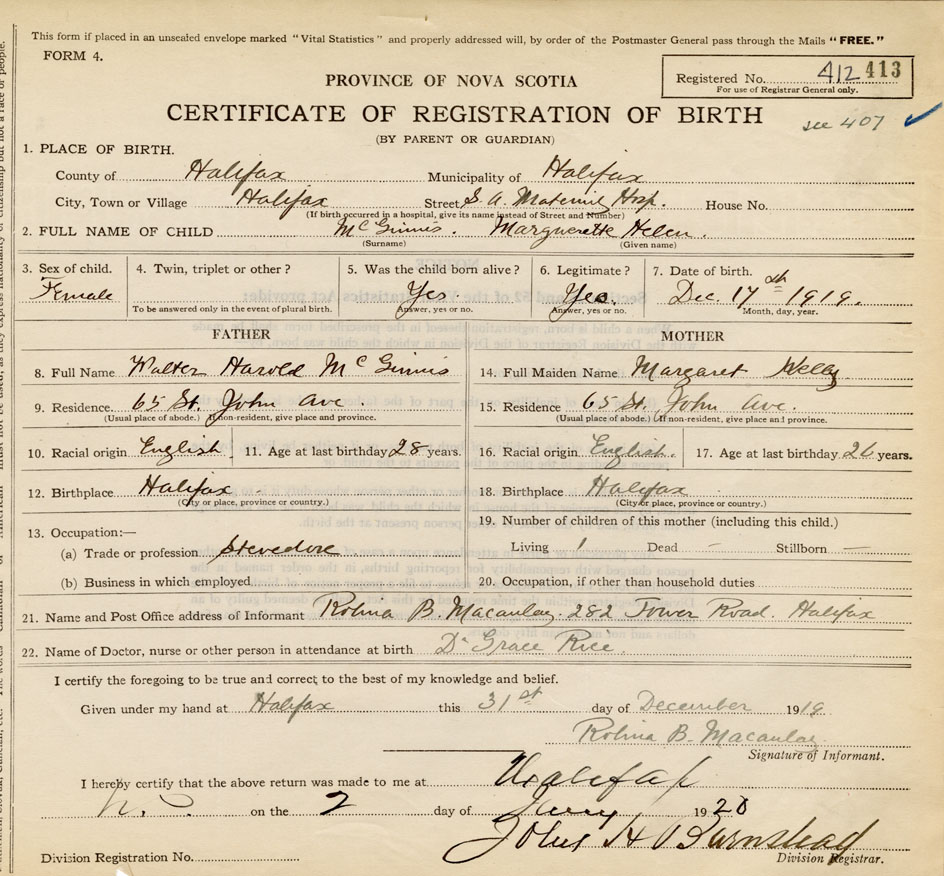 This form if placed in an unsealed envelope marked "Vital Statistics" and properly addressed will, by order of the Postmaster General pass through the Mails "FREE."
FORM 4.
Registered No. 412 413
For use of Registrar General only.
PROVINCE OF NOVA SCOTIA
CERTIFICATE OF REGISTRATION OF BIRTH
see 407
(BY PARENT OR GUARDIAN)
1. PLACE OF BIRTH.
County of Halifax Municipality of Halifax
City, Town or Village Halifax Street S. A. Maternity Hosp. House No.
(If birth occurred in a hospital, give its name instead of Street and Number)
2. FULL NAME OF CHILD McGinnis. Marguerette Helen.
(Surname) (Given name)
3. Sex of child. 4. Twin, triplet or other? 5. Was the child born alive? 6. Legitimate? 7. Date of birth.
Female Yes. Yes. Dec. 17th 1919.
To be answered only in the event of plural birth. Answer, yes or no. Answer, yes or no. Month, day, year.
FATHER MOTHER
8. Full Name Walter Harold McGinnis 14. Full Maiden Name Margaret Kelly
9. Residence 65 St. John Ave 15. Residence 65 St. John Ave.
(Usual place of abode.) If non-resident, give place and province. (Usual place of abode.) (If non-resident, give place and province.
10. Racial origin English. 11. Age at last birthday 28 years. 16. Racial origin English. 17. Age at last birthday 26 years.
12. Birthplace Halifax 18. Birthplace Halifax
(City or place, province or country.) (City or place, province or country.)
13. Occupation:— 19. Number of children of this mother (including this child.)
(a) Trade or profession Stevedore Living 1 Dead – Stillborn —
(b) Business in which employed 20. Occupation, if other than household duties
21. Name and Post Office address of Informant Robina B. Macaulay, 282 Tower Road. Halifax
22. Name of Doctor, nurse or other person in attendance at birth Dr Grace Rice.
I certify the foregoing to be true and correct to the best of my knowledge and belief.
Given under my hand at Halifax this 31st day of December 1919
Robina B. Macaulay.
Signature of Informant.
I hereby certify that the above return was made to me at Halifax
N.S. on the 2 day of Jany 1920
John H Barnstead
Division Registration No. Division Registrar.